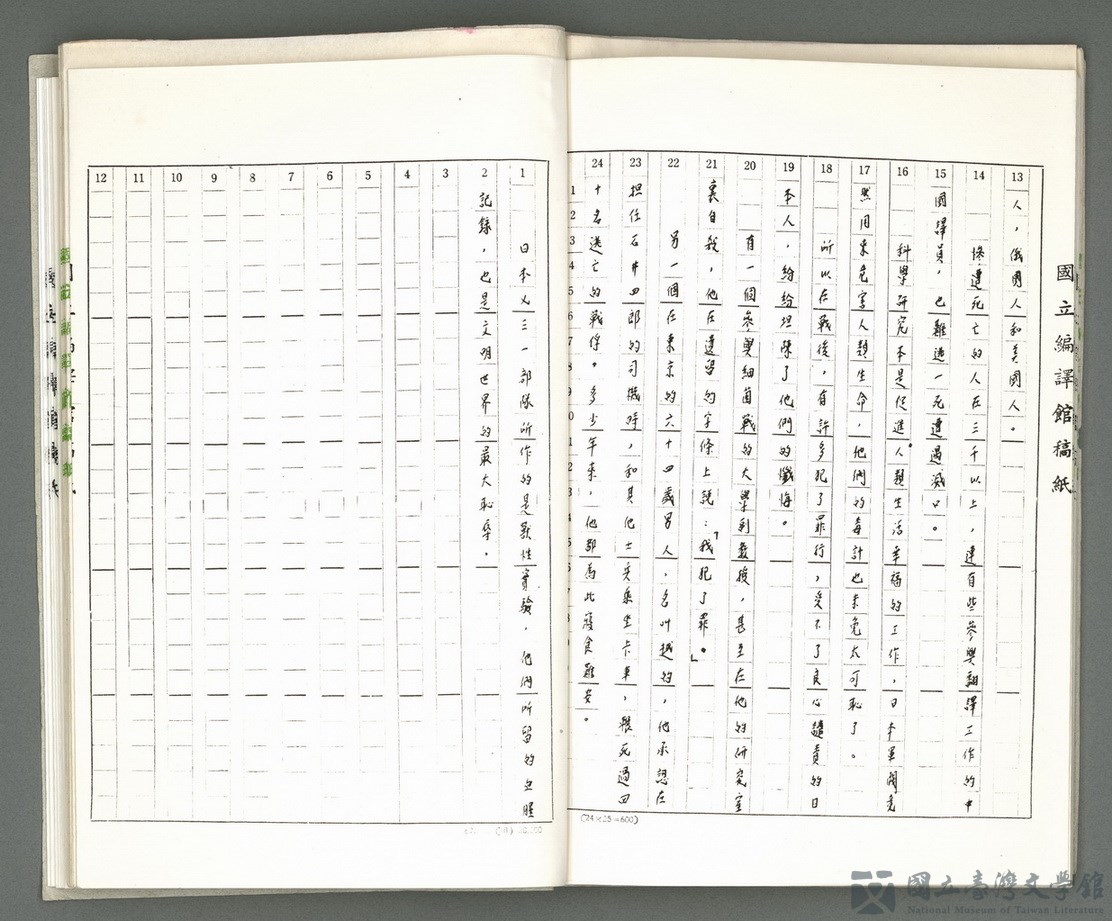 國立編譯館稿紙
13
人，俄國人和美國人。
14
慘遭死亡的人在三千以上，連有些參與翻譯工作的中
15
國譯員，也難逃一死遭過滅口。
16
科學研究本是促進人類生活幸福的工作，日本軍閥竟
17
然用來危害人類生命，他們的毒計也未免太可恥了。
18
所以在戰後，有許多犯了罪行，受不了良心譴責的日
19
本人，紛紛坦陳了他們的懺悔。
20
有一個參與細菌戰的大學副教授，甚至在他的研究室
21
裏自殺，他在遺留的字條上說：「我犯了罪。」
22
另一個在東京的六十四歲男人，名叫越的，他承認在
23
担任石井四郎的司機時，和其他士兵乘坐卡車，輾死過四
24
十名逃亡的戰俘。多少年來，他都為此寢食難安。
(24×25=600)
1
日本七三一部隊所作的是獸性實驗，他們所留的血腥
2
記錄，也是文明世界的最大恥辱。
3
4
5
6
7
8
9
10
11
12
國立臺灣文學館
National Museum of Taiwan Literature